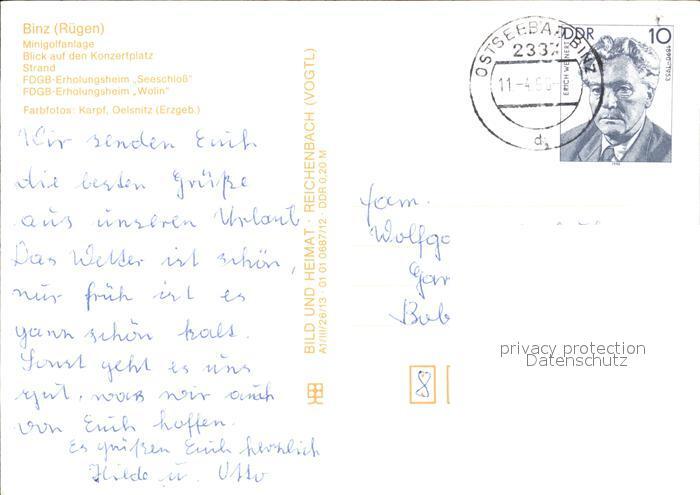 Binz (Rügen)
Minigolfanlage
Blick auf den Konzertplatz
Strand
FDGB-Erholungsheim „Seeschloß"
FDGB-Erholungsheim „Wolin"
Farbfotos: Karpf, Oelsnitz (Erzgeb.)
Wir senden Euch
die besten Grüße
aus unseren Urlaub
Das Wetter ist schön,
nur früh ist es
ganz schön kalt.
Sonst geht es uns
gut, was wir auch
von Euch hoffen.
Es grüßen Euch herzlich
Hilde u. Otto
BILD UND HEIMAT · REICHENBACH (VOGTL)
A1/III/26/13 · 01 01 0687/12 · DDR 0,20 M
OSTSEEBAD BINZ
2337
11.-4.90-
d
DDR 10
ERICH WEINERT
1890-1953
1990
Fam.
Wolfga
Gar
Bob
8
privacy protection
Datenschutz